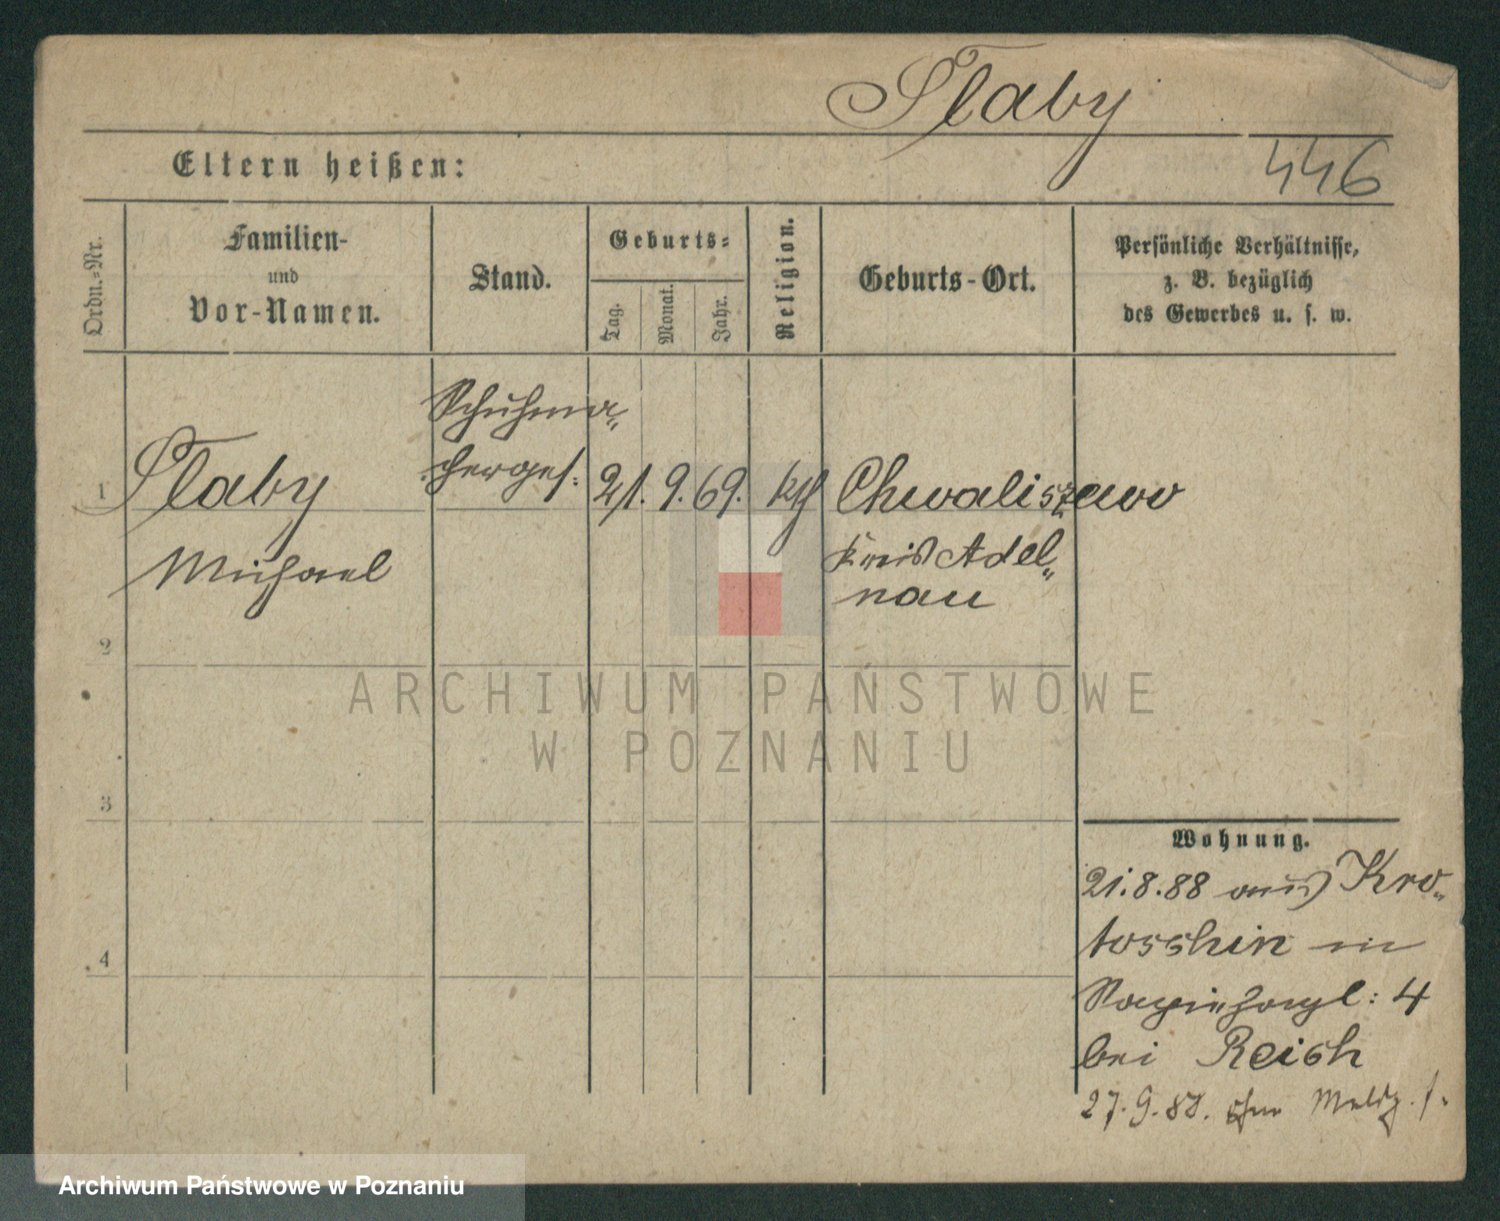 Slaby
Eltern heißen:
446
Ordn.-Nr.
Familien-
und
Vor-Namen.
Stand.
Geburts-
Tag.
Monat.
Jahr.
Religion.
Geburts-Ort.
Persönliche Verhältnisse,
z. B. bezüglich
des Gewerbes u. s. w.
Schuhma-
cherges.
1 Slaby 21. 9. 69. kth Chwaliszewo
Michael Kreis Adel-
nau
2
ARCHIWUM PAŃSTWOWE
W POZNANIU
3
Wohnung.
21.8.88 aus Kro-
4
toschin in
Sapiehapl: 4
bei Reich
27.9.88. ohne Meldg.
Archiwum Państwowe w Poznaniu